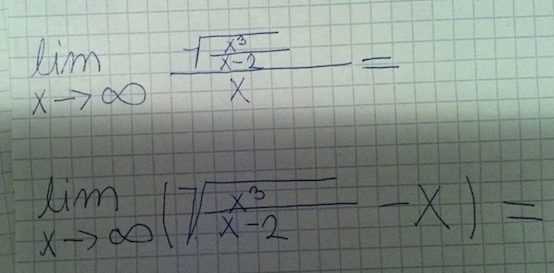 lim x→∞ √(x³/(x-2)) / x =
lim x→∞ (√(x³/(x-2)) - x) =